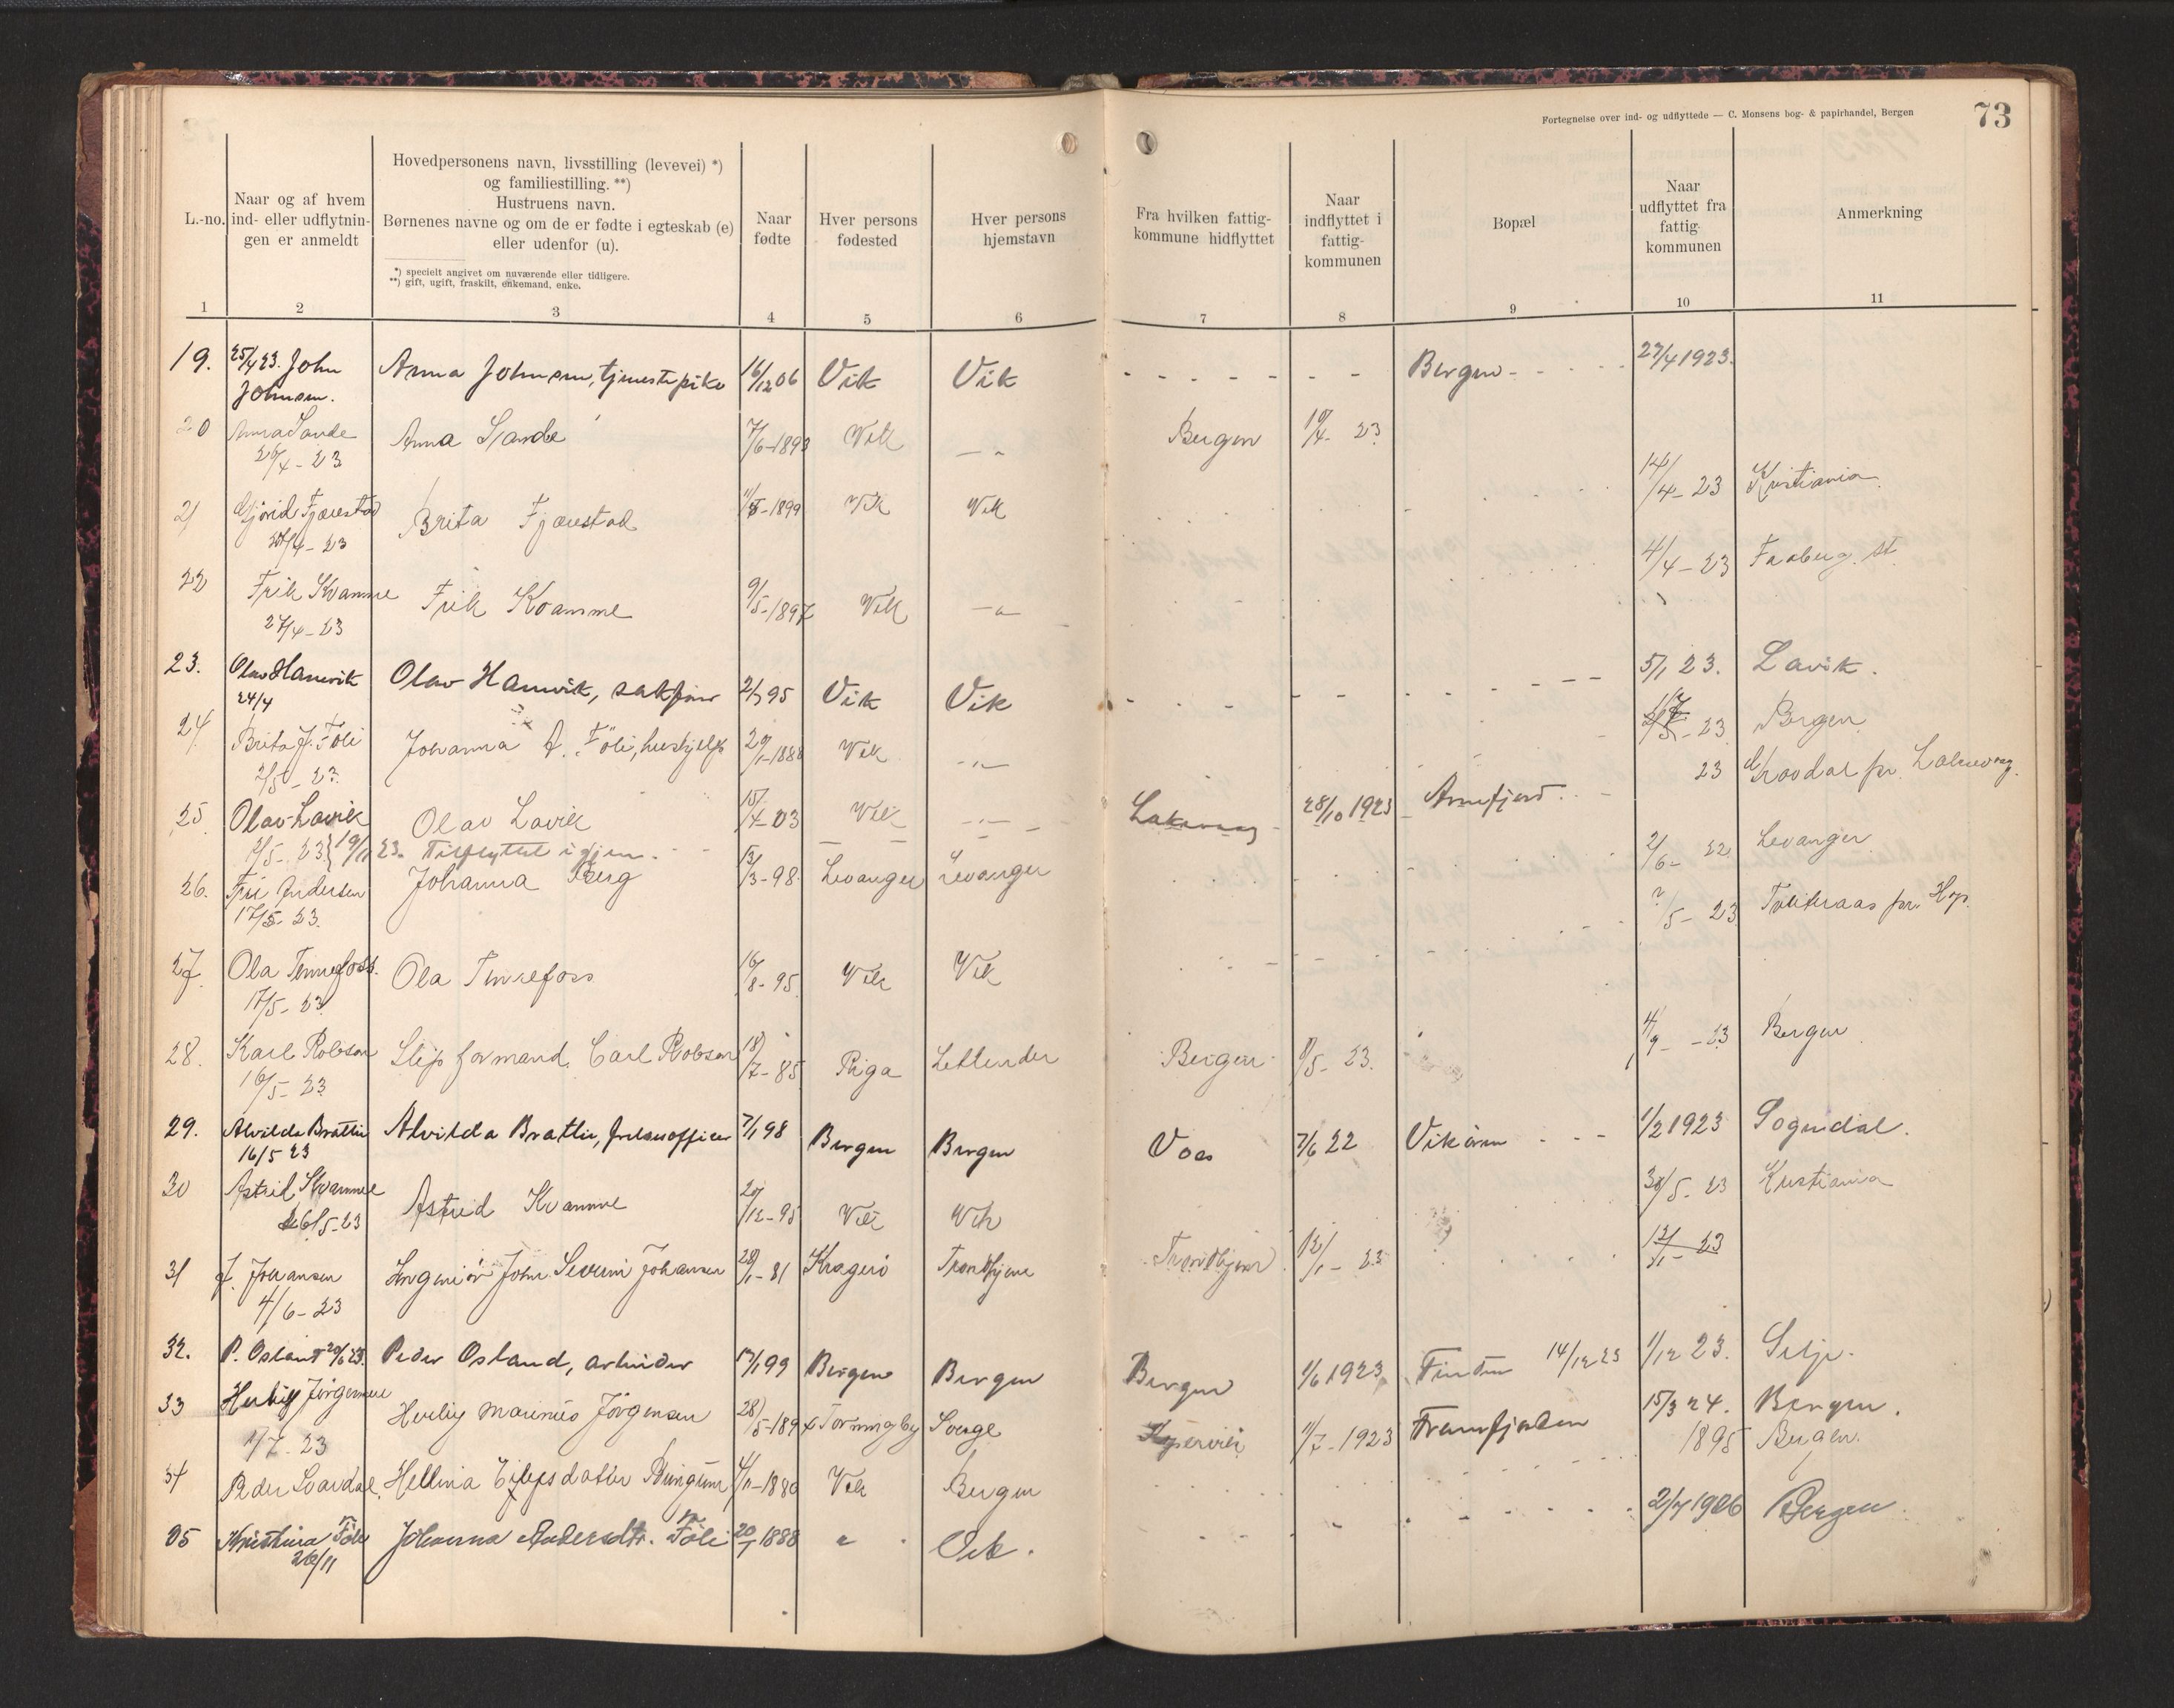 Fortegnelse over ind- og udflyttede — C. Monsens bog- & papirhandel, Bergen
73
L.-no.
Naar og af hvem
ind- eller udflytnin-
gen er anmeldt
Hovedpersonens navn, livsstilling (levevei) *)
og familiestilling. **)
Hustruens navn.
Børnenes navne og om de er fødte i egteskab (e)
eller udenfor (u).
*) specielt angivet om nuværende eller tidligere.
**) gift, ugift, fraskilt, enkemand, enke.
Naar
fødte
Hver persons
fødested
Hver persons
hjemstavn
Fra hvilken fattig-
kommune hidflyttet
Naar
indflyttet i
fattig-
kommunen
Bopæl
Naar
udflyttet fra
fattig-
kommunen
Anmerkning
1 2 3 4 5 6 7 8 9 10 11
19. 25/4 23. John Anna Johnsen, tjenestepike 16/12 06 Vik Vik Bergen 27/4 1923.
Johnsen.
20 Anna Sande Anna Sande 7/6-1893 Vik — " — Bergen 19/4- 23
26/4-23
14/4-23 Kristiania
21 Gjørid Fjærestad Brita Fjærestad 1899 Vik Vik
23
4/4-23 Faaberg st
22 Erik Kvamme Erik Kvamme 9/5-1897 Vik — " —
27/4-23
23. Olav Hamvik Olav Hamvik, sakfører 2/7 95 Vik Vik 5/1 23. Lavik.
24/4
23 Bergen
24 Brita J. Föli Johanna A. Föli, hushjelp 29/1-1888 Vik — " —
2/5-23.
23 pr. Laksevaag.
25 Olav Lavik Olav Lavik 15/4-03 Vik — " — Laksevaag 28/10 1923 Arnefjord.
2/5-23 19/11 23. Tilflyttet igjen.
2/6-22 Levanger
26. Andersen Johanna Berg 13/3-98. Levanger Levanger
17/5-23.
/5-23 pr. Hop.
27. Ola Tennefoss. Ola Tennefoss 16/8-95 Vik Vik
17/5-23
4/9--23 Bergen
28. Karl Robson Slipformand. Carl Robson 18/7-85 Riga Lettlender Bergen 8/5-23.
16/5-23
29. Alvilda Brattli Alvilda Brattli, frelsesofficer 7/1 98 Bergen Bergen Voss 7/6 22 Vikøren 1/2 1923 Sogndal.
16/5 23
30/5-23 Kristiania
30 Astrid Kvamme Astrid Kvamme 20/12-95 Vik Vik
26/5-23
12/1-23
31 J. Johansen Ingeniør John Severin Johansen 28/1-81 Kragerö Trondhjem Trondhjem 12/1-23
4/6-23
32. P. Osland 20/6 23. Peder Osland, arbeider 17/1 99 Bergen Bergen Bergen 1/6 1923 Finden 14/12 23 1/12 23. Selje.
33 Herbig Jörgensen Herbig Marinus Jörgensen 28/5-1894 Tormingby Sverge Kopervik 1/7-1923 Framfjorden 15/3 24. Bergen.
1/7-23
1895 Bergen.
34 Peder Svardal. Hellina Eilefsdatter 4/11-1880 Vik Bergen
2/7 1906 Bergen
35 Kristina Föli Johanna Andersdtr. Föli 20/1 1888 " Vik.
26/11